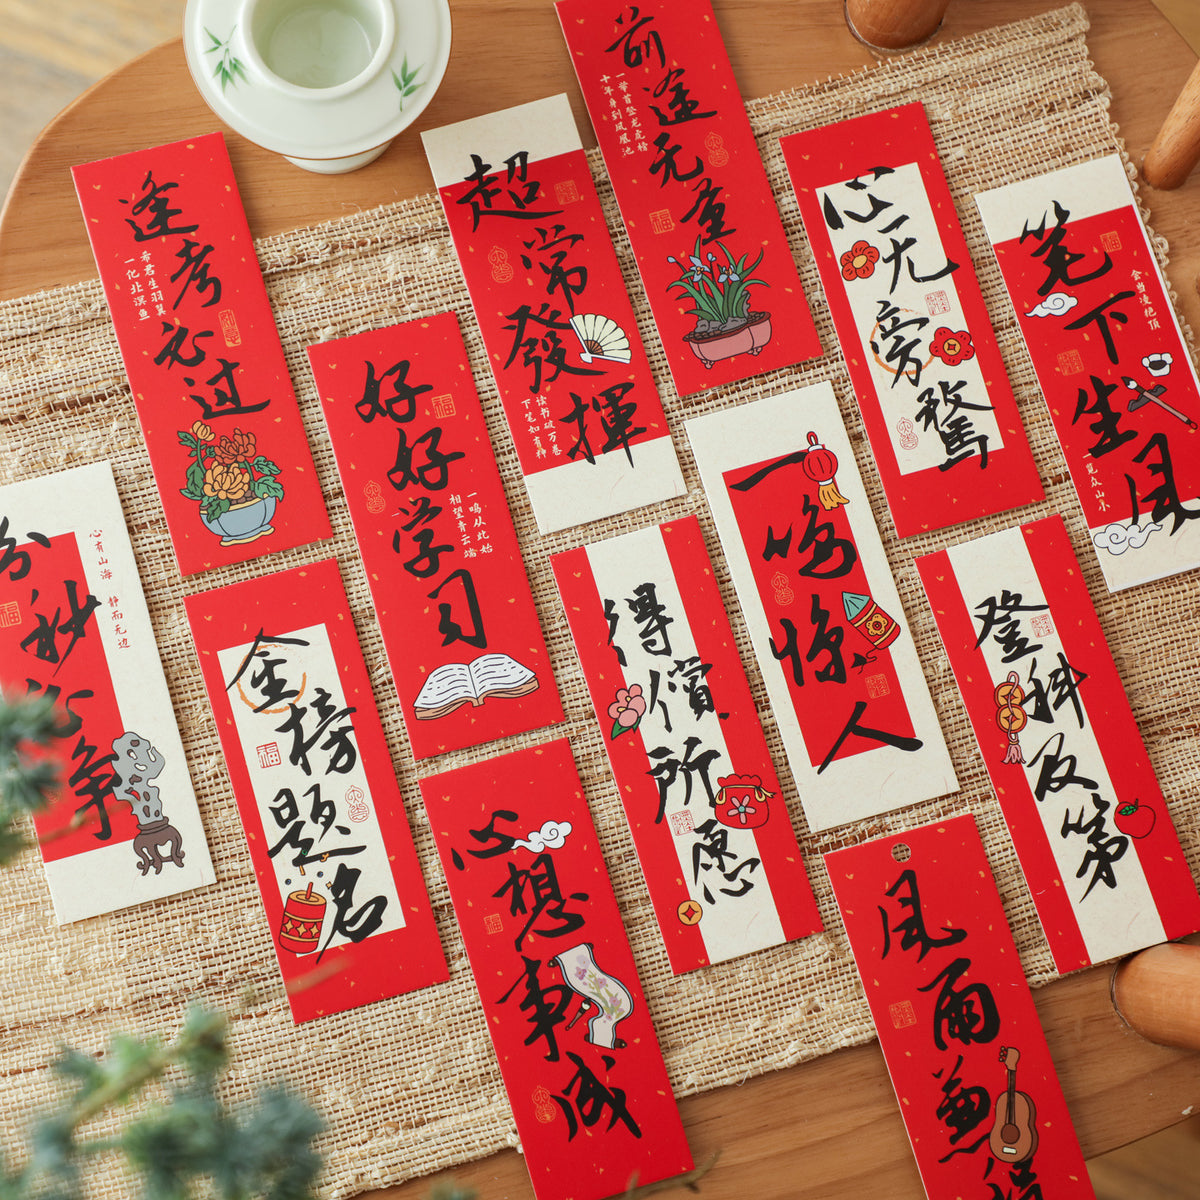 逢考必过
希君生羽翼
一化北溟鱼
超常發揮
读书破万卷
下笔如有神
前途无量
一举首登龙虎榜
十年身到凤凰池
心无旁骛
笔下生风
会当凌绝顶
一览众山小
分秒必争
心有山海 静而无边
金榜题名
好好学习
一鸣从此始
相望青云端
得償所愿
一鸣惊人
登科及第
心想事成
风雨兼程
福
福
福
福
福
福